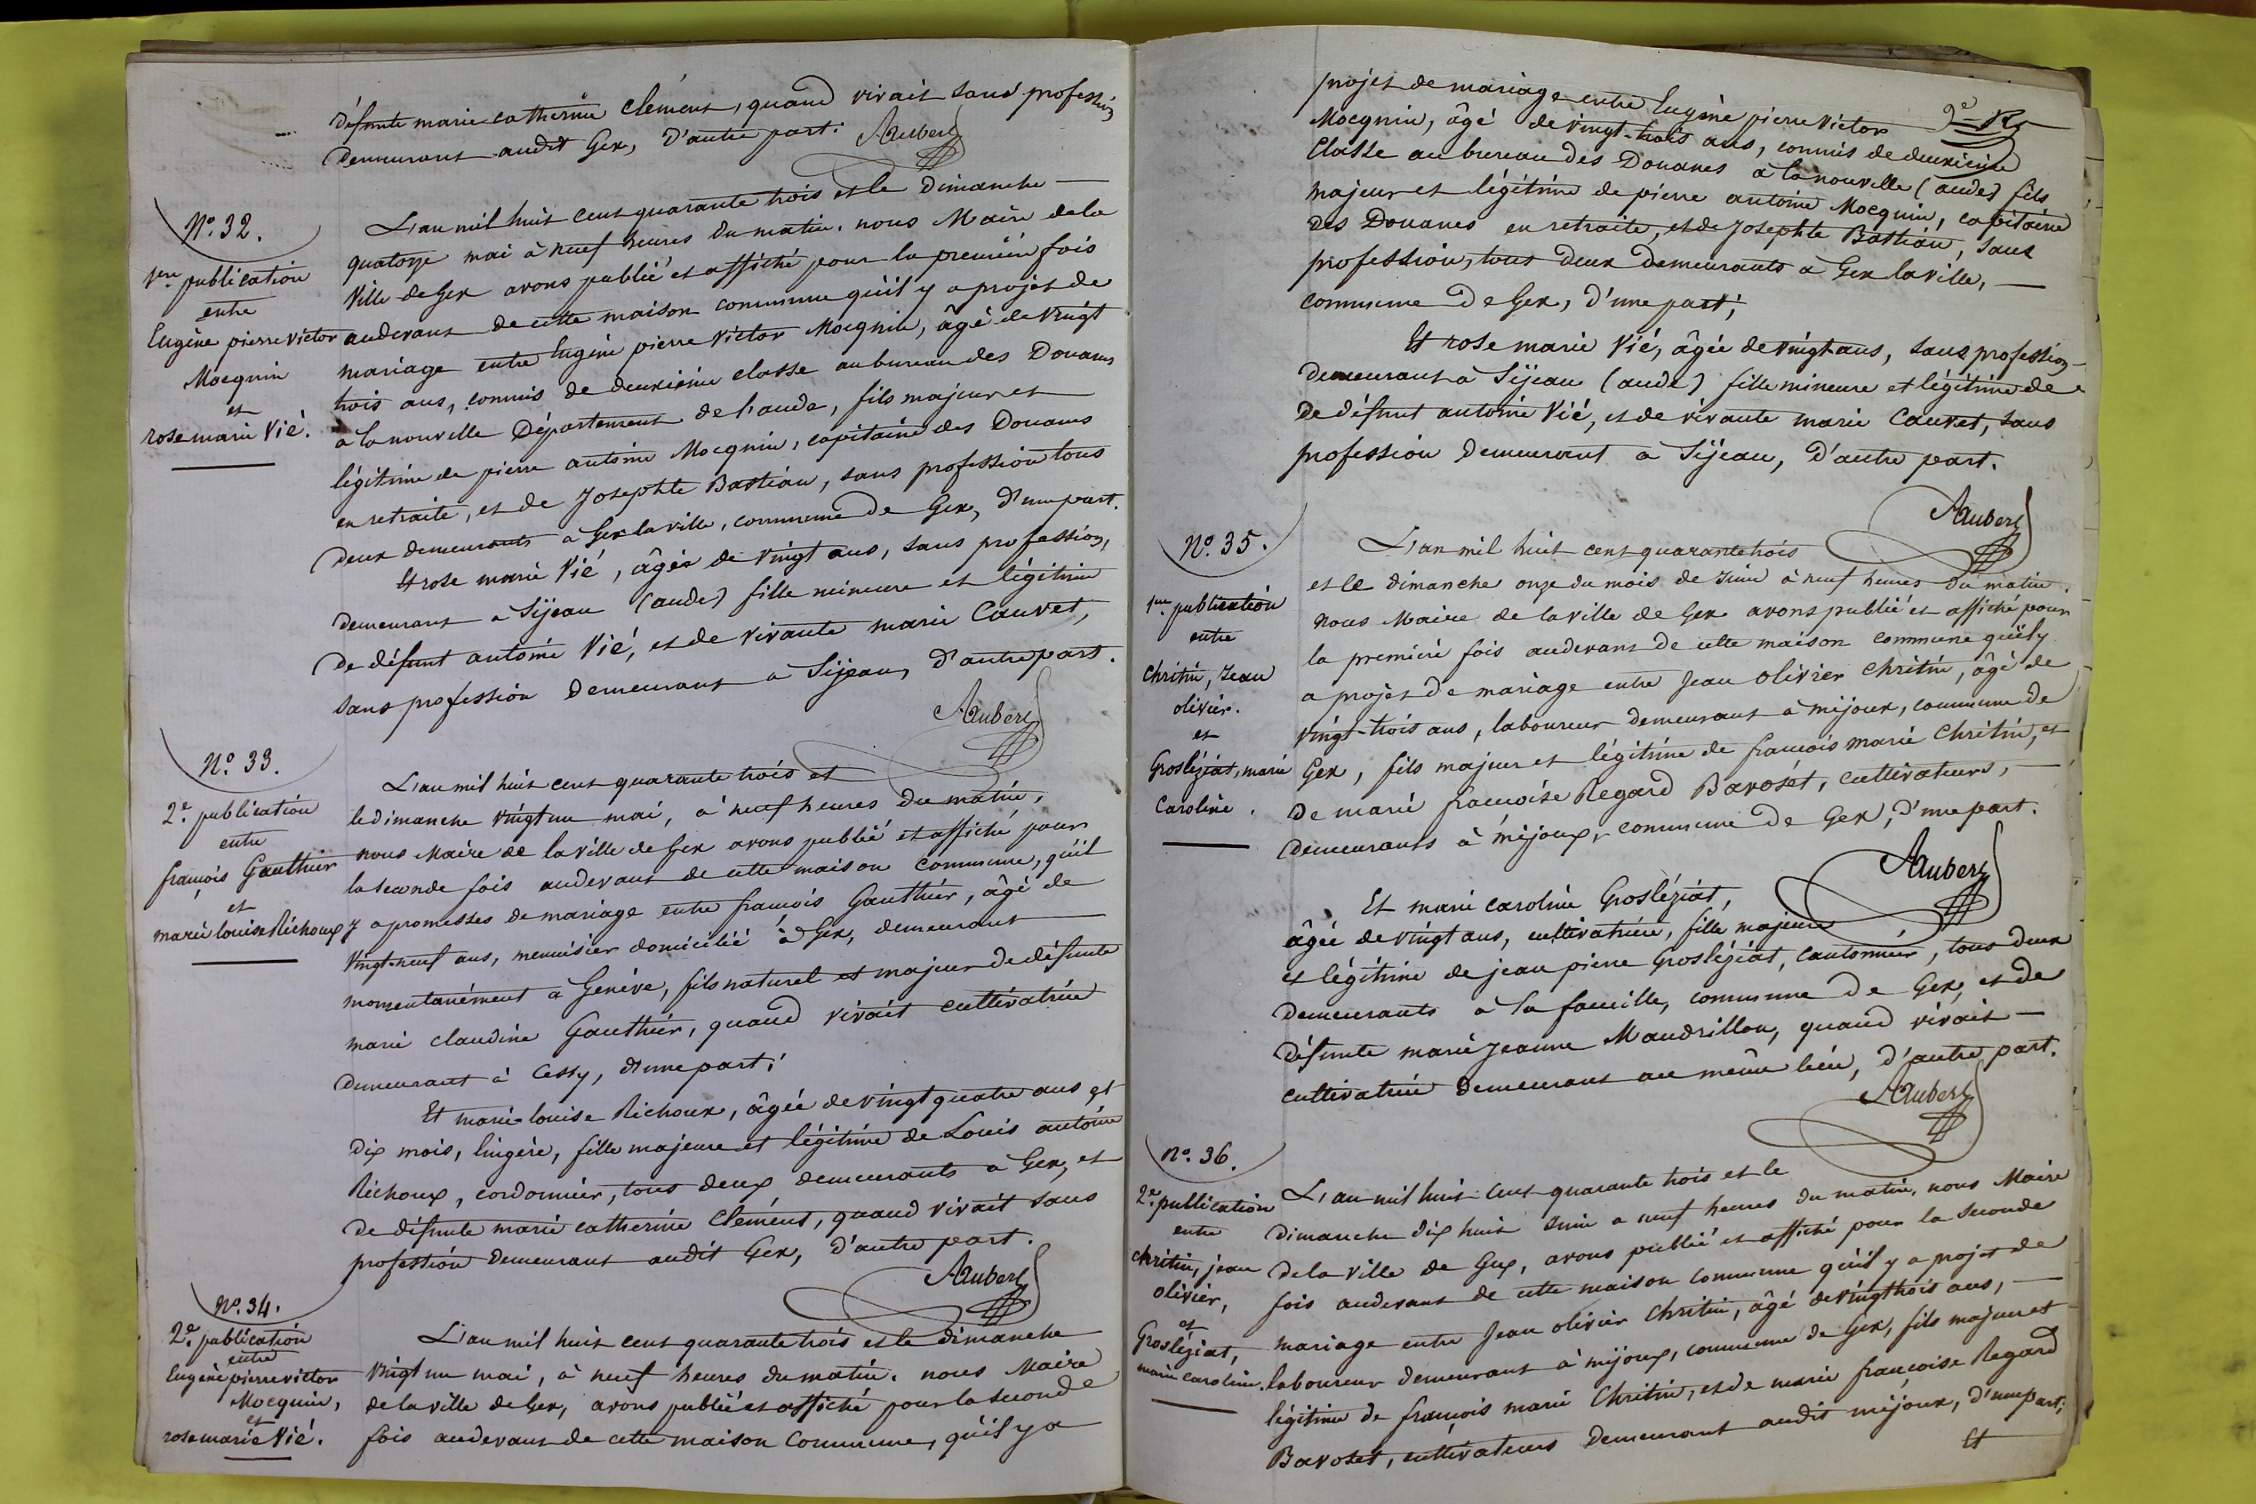 défunte marie catherine Clément, quand vivait sans profession
demeurant audit Gex, d'autre part. Aubert
N.° 32.
1ere publication
entre
Eugène pierre victor
Mocquin
et
rose marie Vié.
L'an mil huit cent quarante trois et le dimanche
quatorze mai à neuf heures du matin. nous Maire de la
Ville de Gex avons publié et affiché pour la première fois
audevant de cette maison commune qu'il y a projet de
mariage entre Eugène pierre victor Mocquin, âgé de vingt
trois ans, commis de deuxième classe au bureau des Douanes
à la nouvelle Département de l'aude, fils majeur et
légitime de pierre antoine Mocquin, capitaine des Douanes
en retraite, et de Josephte Bastian, sans profession tous
deux demeurants à Gex la ville, commune de Gex, d'une part.
Et rose marie Vié, âgée de vingt ans, sans profession,
demeurant à Sijeau (aude) fille mineure et légitime
de défunt antoine Vié, et de vivante marie Cauvet,
sans profession demeurant à Sijeau, d'autre part.
Aubert
N.° 33.
2e publication
entre
françois Gauthier
et
marie louise Richoux
L'an mil huit cent quarante trois et
le dimanche vingt un mai, à neuf heures du matin,
nous Maire de la ville de Gex avons publié et affiché pour
la seconde fois audevant de cette maison commune, qu'il
y a promesses de mariage entre françois Gauthier, âgé de
vingt-neuf ans, menuisier domicilié à Gex, demeurant
momentanément à Genève, fils naturel et majeur de défunte
marie claudine Gauthier, quand vivait cultivatrice
demeurant à Cessy, d'une part;
Et marie louise Richoux, âgée de vingt quatre ans et
dix mois, lingère, fille majeure et légitime de Louis antoine
Richoux, cordonnier, tous deux demeurants à Gex, et
de défunte marie catherine Clément, quand vivait sans
profession demeurant audit Gex, d'autre part.
Aubert
N.° 34.
2e publication
entre
Eugène pierre victor
Mocquin,
et
rose marie Vié.
L'an mil huit cent quarante trois et le dimanche
vingt un mai, à neuf heures du matin. nous Maire
de la ville de Gex, avons publié et affiché pour la seconde
fois audevant de cette maison commune, qu'il y a
projet de mariage entre Eugène pierre victor
Mocquin, âgé de vingt-trois ans, commis de deuxième
Classe au bureau des Douanes à la nouvelle (aude) fils
majeur et légitime de pierre antoine Mocquin, capitaine
des Douanes en retraite, et de Josephte Bastian, sans
profession, tous deux demeurants à Gex la ville,
commune de Gex, d'une part;
Et rose marie Vié, âgée de vingt ans, sans profession
demeurant à Sijeau (aude) fille mineure et légitime de
de défunt antoine Vié, et de vivante marie Cauvet, sans
profession demeurant à Sijeau, d'autre part.
Aubert
N.° 35.
1ere publication
entre
Chritin, Jean
olivier.
et
Groslégiat, marie
Caroline.
L'an mil huit cent quarante trois
et le dimanche onze du mois de Juin à neuf heures du matin.
nous Maire de la ville de Gex avons publié et affiché pour
la première fois audevant de cette maison commune qu'il y
a projet de mariage entre Jean olivier Chritin, âgé de
vingt-trois ans, laboureur demeurant à mijoux, commune de
Gex, fils majeur et légitime de françois marie Chritin, et
de marie françoise Regard Baroset, cultivateurs,
demeurants à mijoux, commune de Gex, d'une part.
Aubert
Et marie caroline Groslégiat,
âgée de vingt ans, cultivatrice, fille majeure
et légitime de jean pierre Groslégiat, cantonnier, tous deux
demeurants à la faucille, commune de Gex, et de
défunte marie Jeanne Mandrillon, quand vivait
cultivatrice demeurant au même lieu, d'autre part.
Aubert
N.° 36.
2e publication
entre
Chritin, jean
olivier,
et
Groslégiat,
marie caroline.
L'an mil huit cent quarante trois et le
dimanche dix huit Juin à neuf heures du matin, nous Maire
de la ville de Gex, avons publié et affiché pour la seconde
fois audevant de cette maison commune qu'il y a projet de
mariage entre Jean olivier Chritin, âgé de vingt trois ans,
laboureur demeurant à mijoux, commune de Gex, fils majeur et
légitime de françois marie Chritin, et de marie françoise Regard
Baroset, cultivateurs demeurant audit mijoux, d'une part;
Et